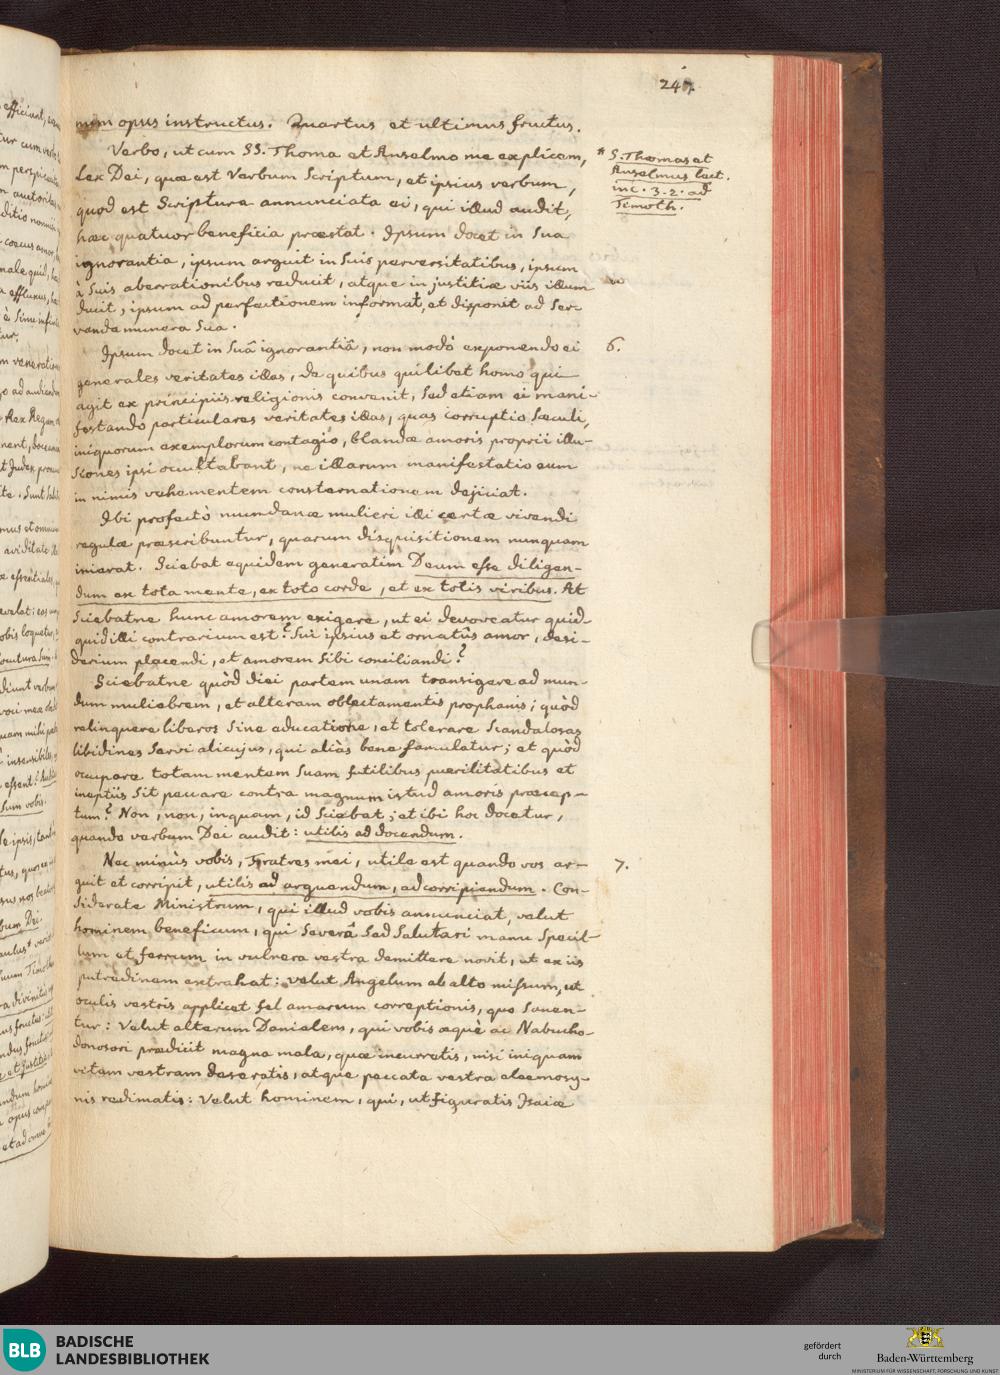 247.
num opus instructus. Quartus et ultimus fructus.
Verbo, ut cum SS. Thoma et Anselmo me explicem,
Lex Dei, quæ est Verbum Scriptum, et ipsius verbum,
quod est Scripturæ annunciata ei, qui illud audit,
hæc quatuor beneficia præstat. Ipsum docet in Sua
ignorantia, ipsum arguit in Suis perversitatibus, ipsum
à Suis aberrationibus reducit, atque in justitiæ viis illum
ducit, ipsum ad perfectionem informat, et disponit ad Ser-
vanda munera Sua.
* S. Thomas et
Anselmus lect.
in c. 3. 2. ad
Timoth.
Ipsum docet in Suâ ignorantiâ, non modò exponendo ei
6.
generales veritates illas, de quibus quilibet homo qui
agit ex principiis religionis convenit, Sed etiam ei mani-
festando particulares veritates illas, quas corruptio Sæculi,
iniquorum exemplorum contagio, blandæ amoris proprii illu-
Siones ipsi occultabant, ne illarum manifestatio eum
in nimis vehementem consternationem dejiciat.
Ibi profectò mundanæ mulieri illi certæ vivendi
regulæ præscribuntur, quarum disquisitionem nunquam
inierat. Sciebat equidem generatim Deum esse diligen-
dum ex tota mente, ex toto corde, et ex totis viribus. At
Sciebatne hunc amorem exigere, ut ei devoveatur quid-
quid illi contrarium est? Sui ipsius et ornatûs amor, desi-
derium placendi, et amorem Sibi conciliandi?
Sciebatne quòd diei partem unam transigere ad mun-
dum muliebrem, et alteram oblectamentis prophanis; quòd
relinquere liberos Sine educatione, et tolerare Scandalosas
libidines Servi alicujus, qui aliàs bene famulatur; et quòd
occupare totam mentem Suam futilibus puerilitatibus et
ineptiis Sit peccare contra magnum istud amoris præcep-
tum? Non, non, inquam, id Sciebat; et ibi hoc docetur,
quando verbum Dei audit: utilis ad docendum.
Nec minùs vobis, Fratres mei, utile est quando vos ar-
7.
guit et corripit, utilis ad arguendum, ad corripiendum. Con-
Siderate Ministrum, qui illud vobis annunciat, velut
hominem beneficum, qui Severâ Sed Salutari manu Specil-
lum et ferrum in vulnera vestra demittere novit, ut ex iis
putredinem extrahat: velut Angelum ab alto missum, ut
oculis vestris applicet fel amarum correptionis, quo Sanen-
tur: Velut alterum Danielem, qui vobis æquè ac Nabucho-
donosori prædicit magna mala, quæ incurretis, nisi iniquam
vitam vestram deseratis, atque peccata vestra eleemosy-
nis redimatis: Velut hominem, qui, ut figuratis Isaiæ
BLB BADISCHE
LANDESBIBLIOTHEK
gefördert
durch
Baden-Württemberg
MINISTERIUM FÜR WISSENSCHAFT, FORSCHUNG UND KUNST